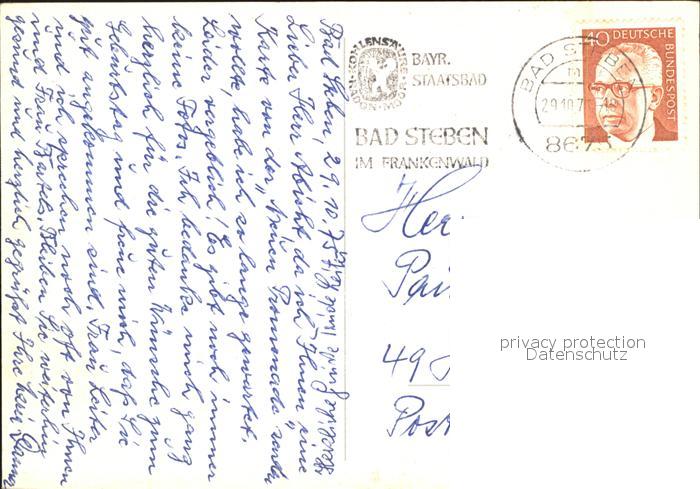 Bad Steben, 29.10.75
Lieber Herr Abicht, da ich Ihnen eine
Karte von der „Neuen Promenade" senden
wollte, habe ich so lange gewartet.
Leider vergeblich! Es gibt noch immer
keine Fotos. Ich bedanke mich ganz
herzlich für die guten Wünsche zum
Geburtstag und freue mich, daß Sie
gut angekommen sind. Frau Leiter
und ich sprechen noch oft von Ihnen
und Frau Bleiben Sie weiterhin
gesund und herzlich gegrüßt Ihre
Herzliche Grüße
KOHLENSÄURE
RADON MOOR
BAYR.
STAATSBAD
BAD STEBEN
IM FRANKENWALD
BAD STEBEN
29.10.7
8675
40 DEUTSCHE
BUNDESPOST
Her
49
Post
privacy protection
Datenschutz